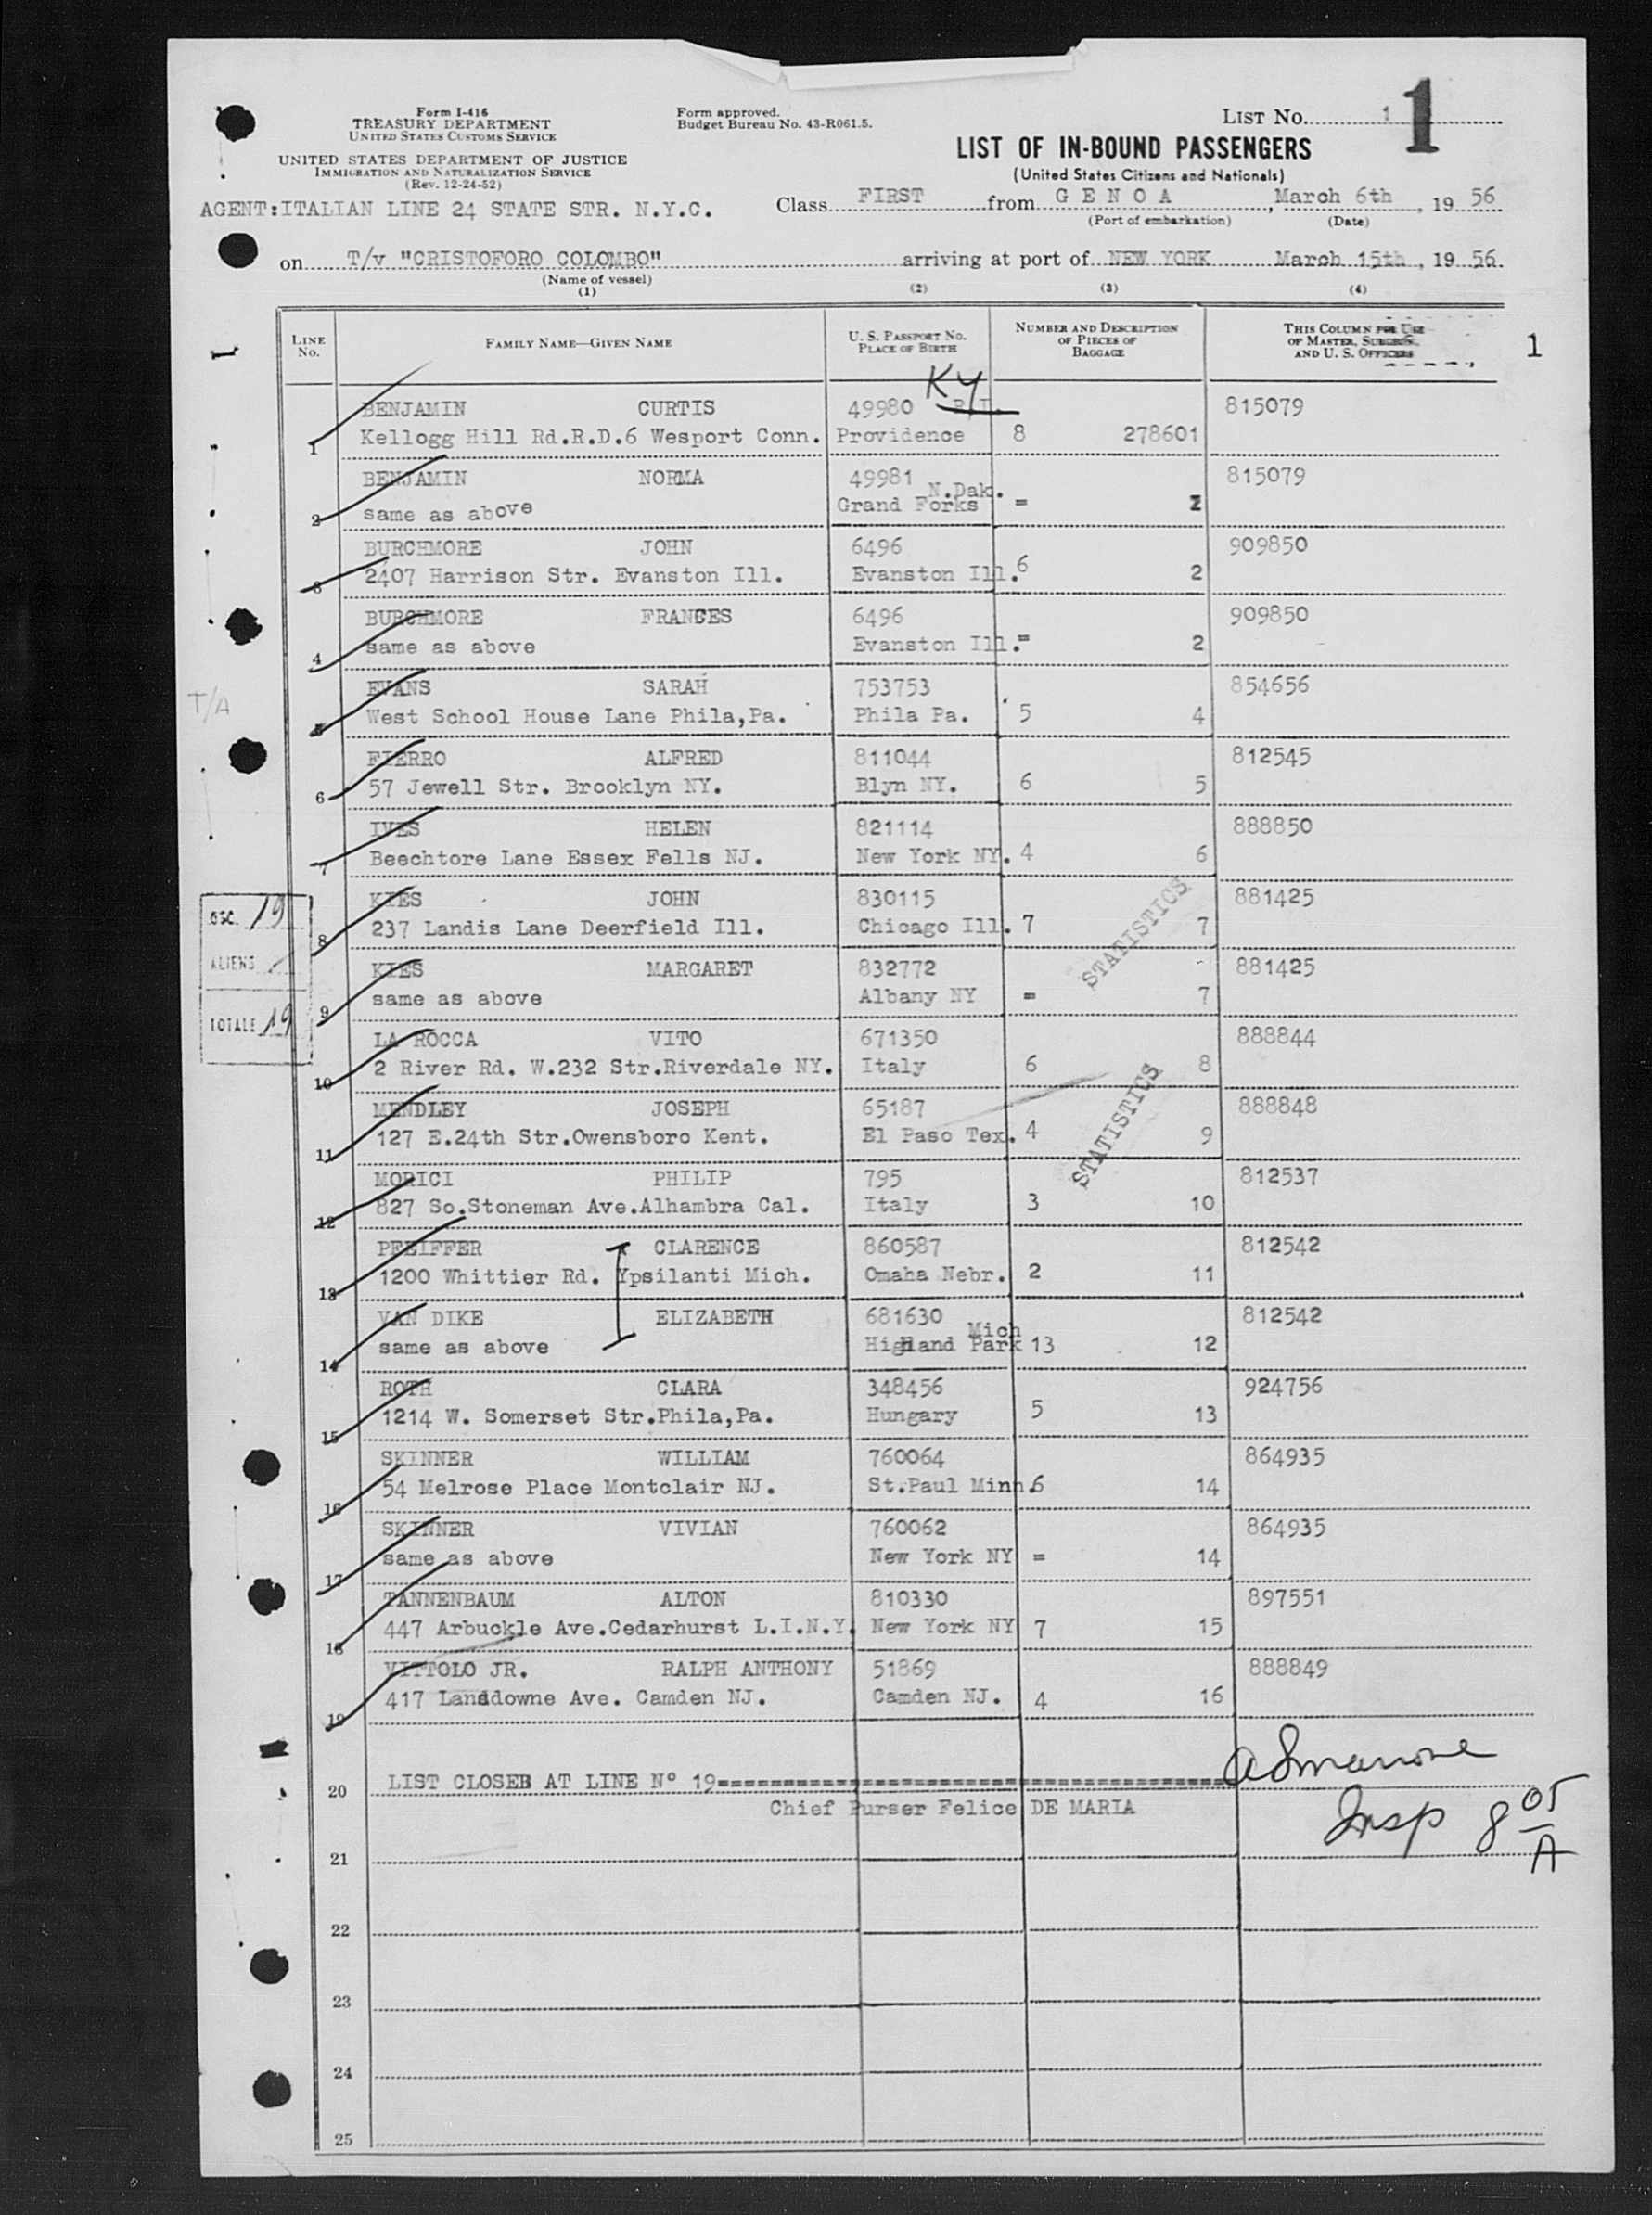 Form I-416
TREASURY DEPARTMENT
UNITED STATES CUSTOMS SERVICE
UNITED STATES DEPARTMENT OF JUSTICE
IMMIGRATION AND NATURALIZATION SERVICE
(Rev. 12-24-52)
Form approved.
Budget Bureau No. 43-R061.5.
LIST No. 1 1
LIST OF IN-BOUND PASSENGERS
(United States Citizens and Nationals)
AGENT:ITALIAN LINE 24 STATE STR. N.Y.C.
Class FIRST from G E N O A , March 6th , 19 56
(Port of embarkation) (Date)
on T/v "CRISTOFORO COLOMBO" arriving at port of NEW YORK March 15th , 19 56
(Name of vessel)
(1) (2) (3) (4)
LINE No. FAMILY NAME—GIVEN NAME U. S. PASSPORT No. PLACE OF BIRTH NUMBER AND DESCRIPTION OF PIECES OF BAGGAGE THIS COLUMN FOR USE OF MASTER, SURGEON, AND U. S. OFFICERS 1
KY
BENJAMIN CURTIS 49980 R.I. 815079
1 Kellogg Hill Rd.R.D.6 Wesport Conn. Providence 8 278601
BENJAMIN NORMA 49981 N.Dak. 815079
2 same as above Grand Forks = 2
BURCHMORE JOHN 6496 909850
3 2407 Harrison Str. Evanston Ill. Evanston Ill. 6 2
BURCHMORE FRANCES 6496 909850
4 same as above Evanston Ill. = 2
T/A
EVANS SARAH 753753 854656
5 West School House Lane Phila,Pa. Phila Pa. 5 4
FIERRO ALFRED 811044 812545
6 57 Jewell Str. Brooklyn NY. Blyn NY. 6 5
IVES HELEN 821114 888850
7 Beechtore Lane Essex Fells NJ. New York NY. 4 6
KIES JOHN 830115 881425
8 237 Landis Lane Deerfield Ill. Chicago Ill. 7 7
STATISTICS
KIES MARGARET 832772 881425
9 same as above Albany NY = 7
19
ALIENS
TOTALE 19
LA ROCCA VITO 671350 888844
10 2 River Rd. W.232 Str.Riverdale NY. Italy 6 8
MENDLEY JOSEPH 65187 888848
11 127 E.24th Str.Owensboro Kent. El Paso Tex. 4 9
STATISTICS
MORICI PHILIP 795 812537
12 827 So.Stoneman Ave.Alhambra Cal. Italy 3 10
PFEIFFER CLARENCE 860587 812542
13 1200 Whittier Rd. Ypsilanti Mich. Omaha Nebr. 2 11
VAN DIKE ELIZABETH 681630 Mich 812542
14 same as above Highland Park 13 12
ROTH CLARA 348456 924756
15 1214 W. Somerset Str.Phila,Pa. Hungary 5 13
SKINNER WILLIAM 760064 864935
16 54 Melrose Place Montclair NJ. St.Paul Minn. 6 14
SKINNER VIVIAN 760062 864935
17 same as above New York NY = 14
TANNENBAUM ALTON 810330 897551
18 447 Arbuckle Ave.Cedarhurst L.I.N.Y. New York NY 7 15
VITTOLO JR. RALPH ANTHONY 51869 888849
19 417 Landdowne Ave. Camden NJ. Camden NJ. 4 16
20 LIST CLOSED AT LINE N° 19
Chief Purser Felice DE MARIA
Insp 8 05/A
21
22
23
24
25